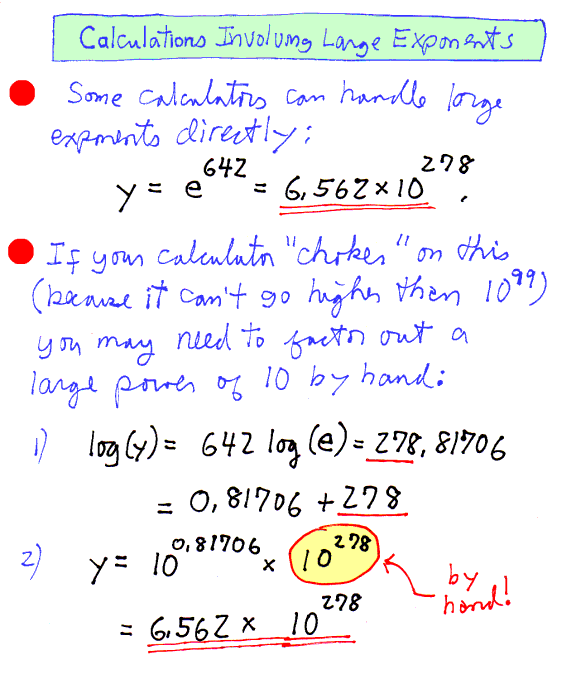 Calculations Involving Large Exponents
Some calculators can handle large
exponents directly:
y = e^642 = 6,562 × 10^278.
If your calculator "chokes" on this
(because it can't go higher than 10^99)
you may need to factor out a
large power of 10 by hand:
1) log(y) = 642 log(e) = 278,81706
= 0,81706 + 278
2) y = 10^0,81706 × 10^278
by
hand!
= 6,562 × 10^278